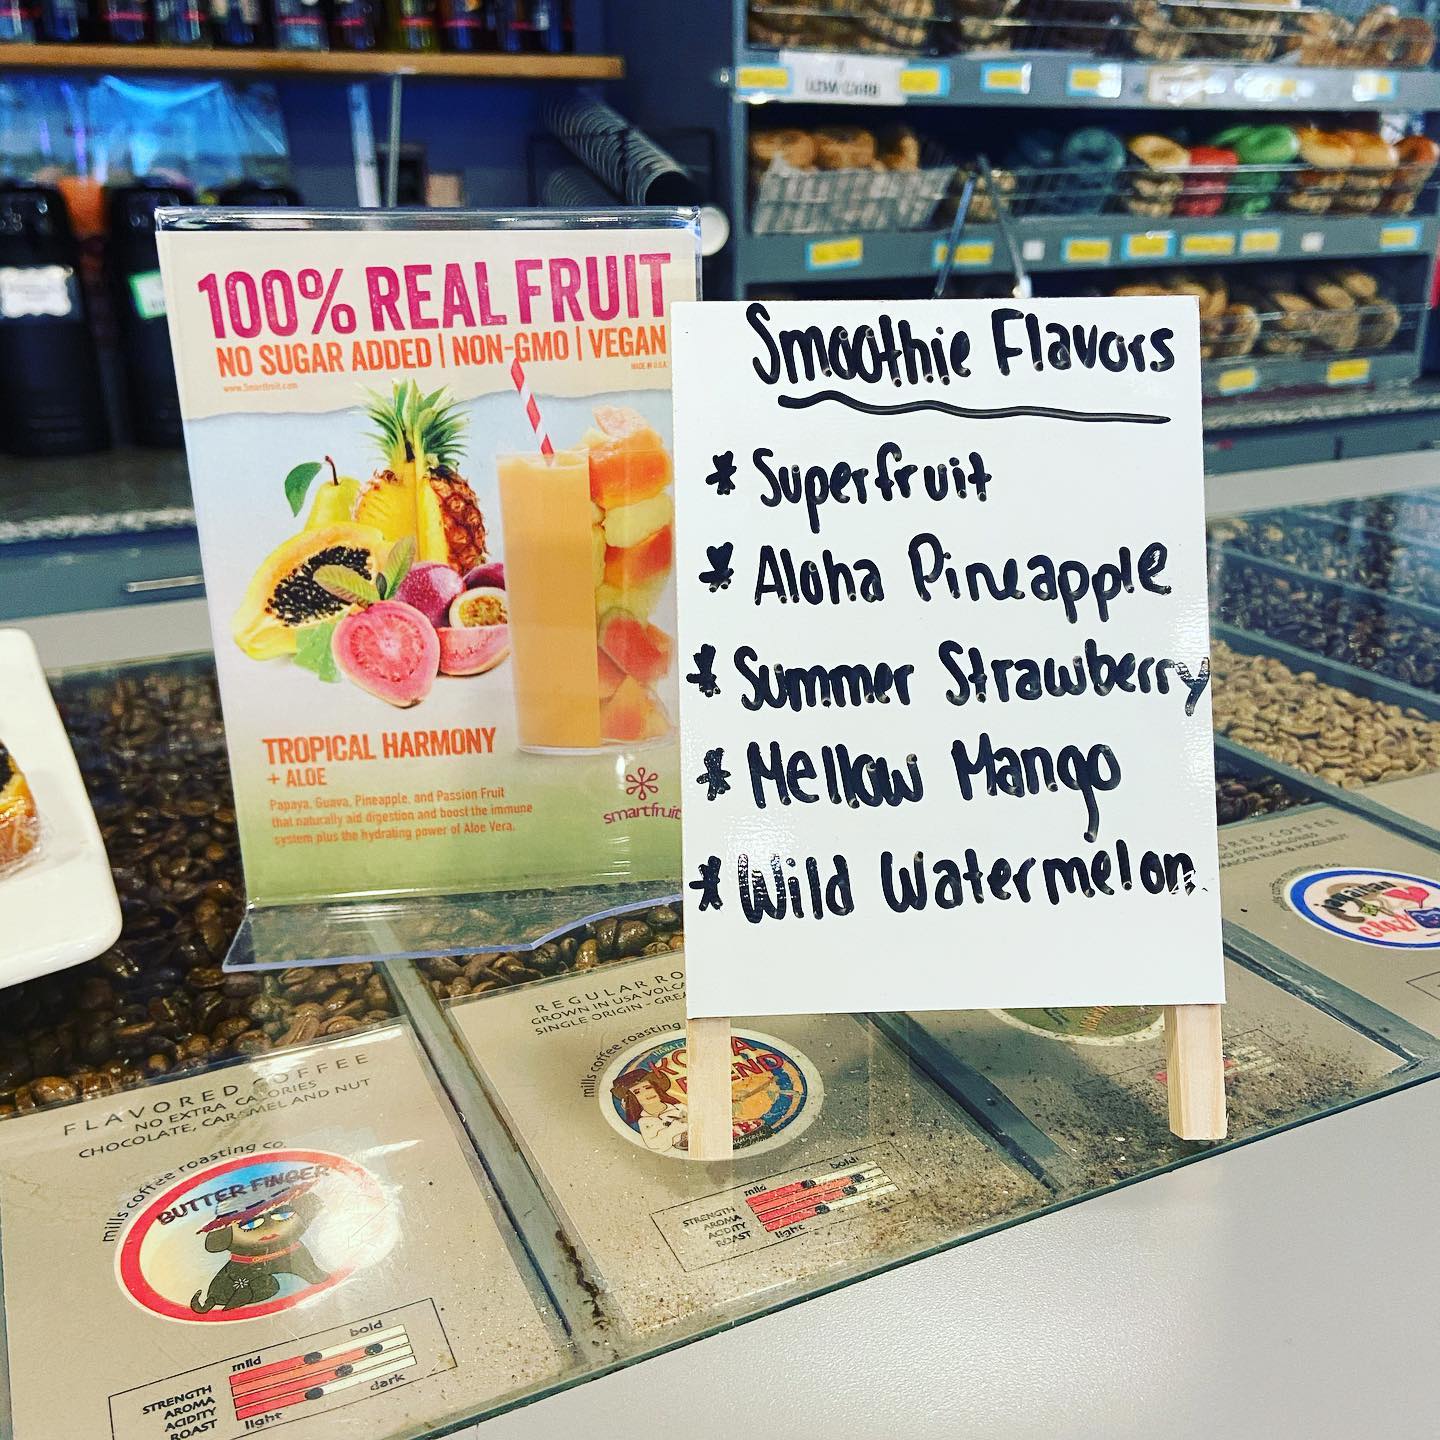 LOW CARB
100% REAL FRUIT
NO SUGAR ADDED | NON-GMO | VEGAN
www.Smartfruit.com
MADE IN U.S.A.
TROPICAL HARMONY
+ ALOE
Papaya, Guava, Pineapple, and Passion Fruit
that naturally aid digestion and boost the immune
system plus the hydrating power of Aloe Vera.
smartfruit
Smoothie Flavors
* Superfruit
* Aloha Pineapple
* Summer Strawberry
* Mellow Mango
* Wild Watermelon
FLAVORED COFFEE
NO EXTRA CALORIES
CHOCOLATE, CARAMEL AND NUT
mills coffee roasting co.
BUTTER FINGER
mild
bold
STRENGTH
AROMA
ACIDITY
ROAST
light
dark
REGULAR RO
GROWN IN USA VOLCA
SINGLE ORIGIN - GREA
mills coffee roasting
KO A
BLEND
mild
bold
STRENGTH
AROMA
ACIDITY
ROAST
light
ORED COFFEE
NO EXTRA CALORIES
RUM & HAZELNUT